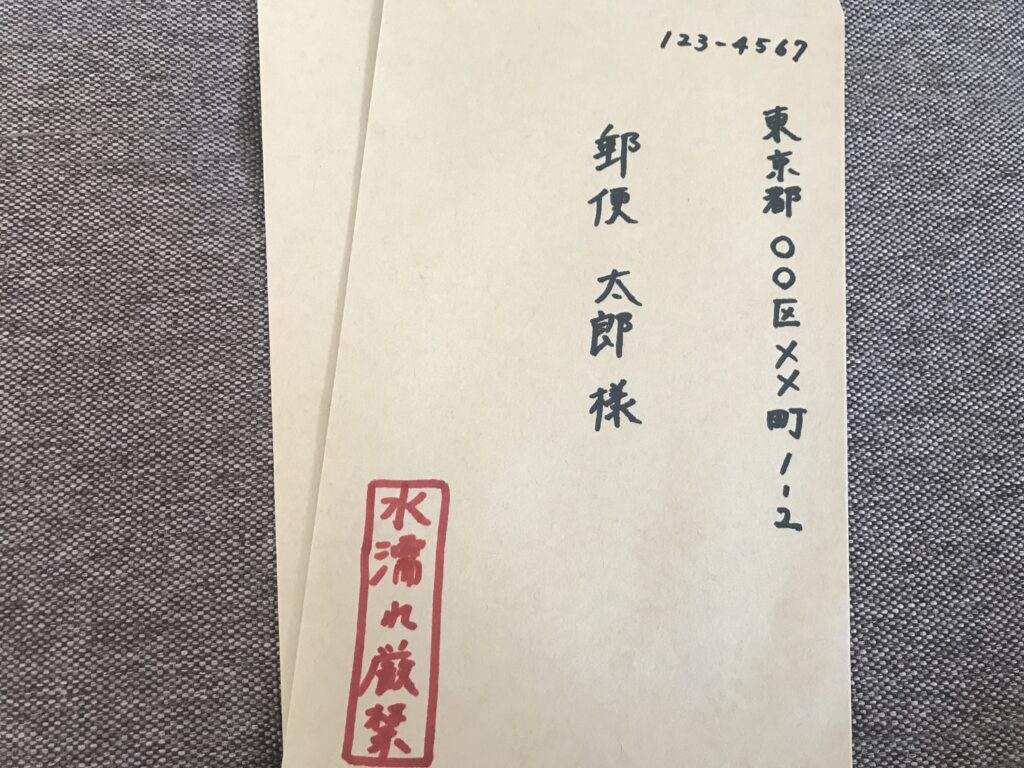 123-4567
東京都〇〇区××町1-2
郵便 太郎 様
水濡れ厳禁